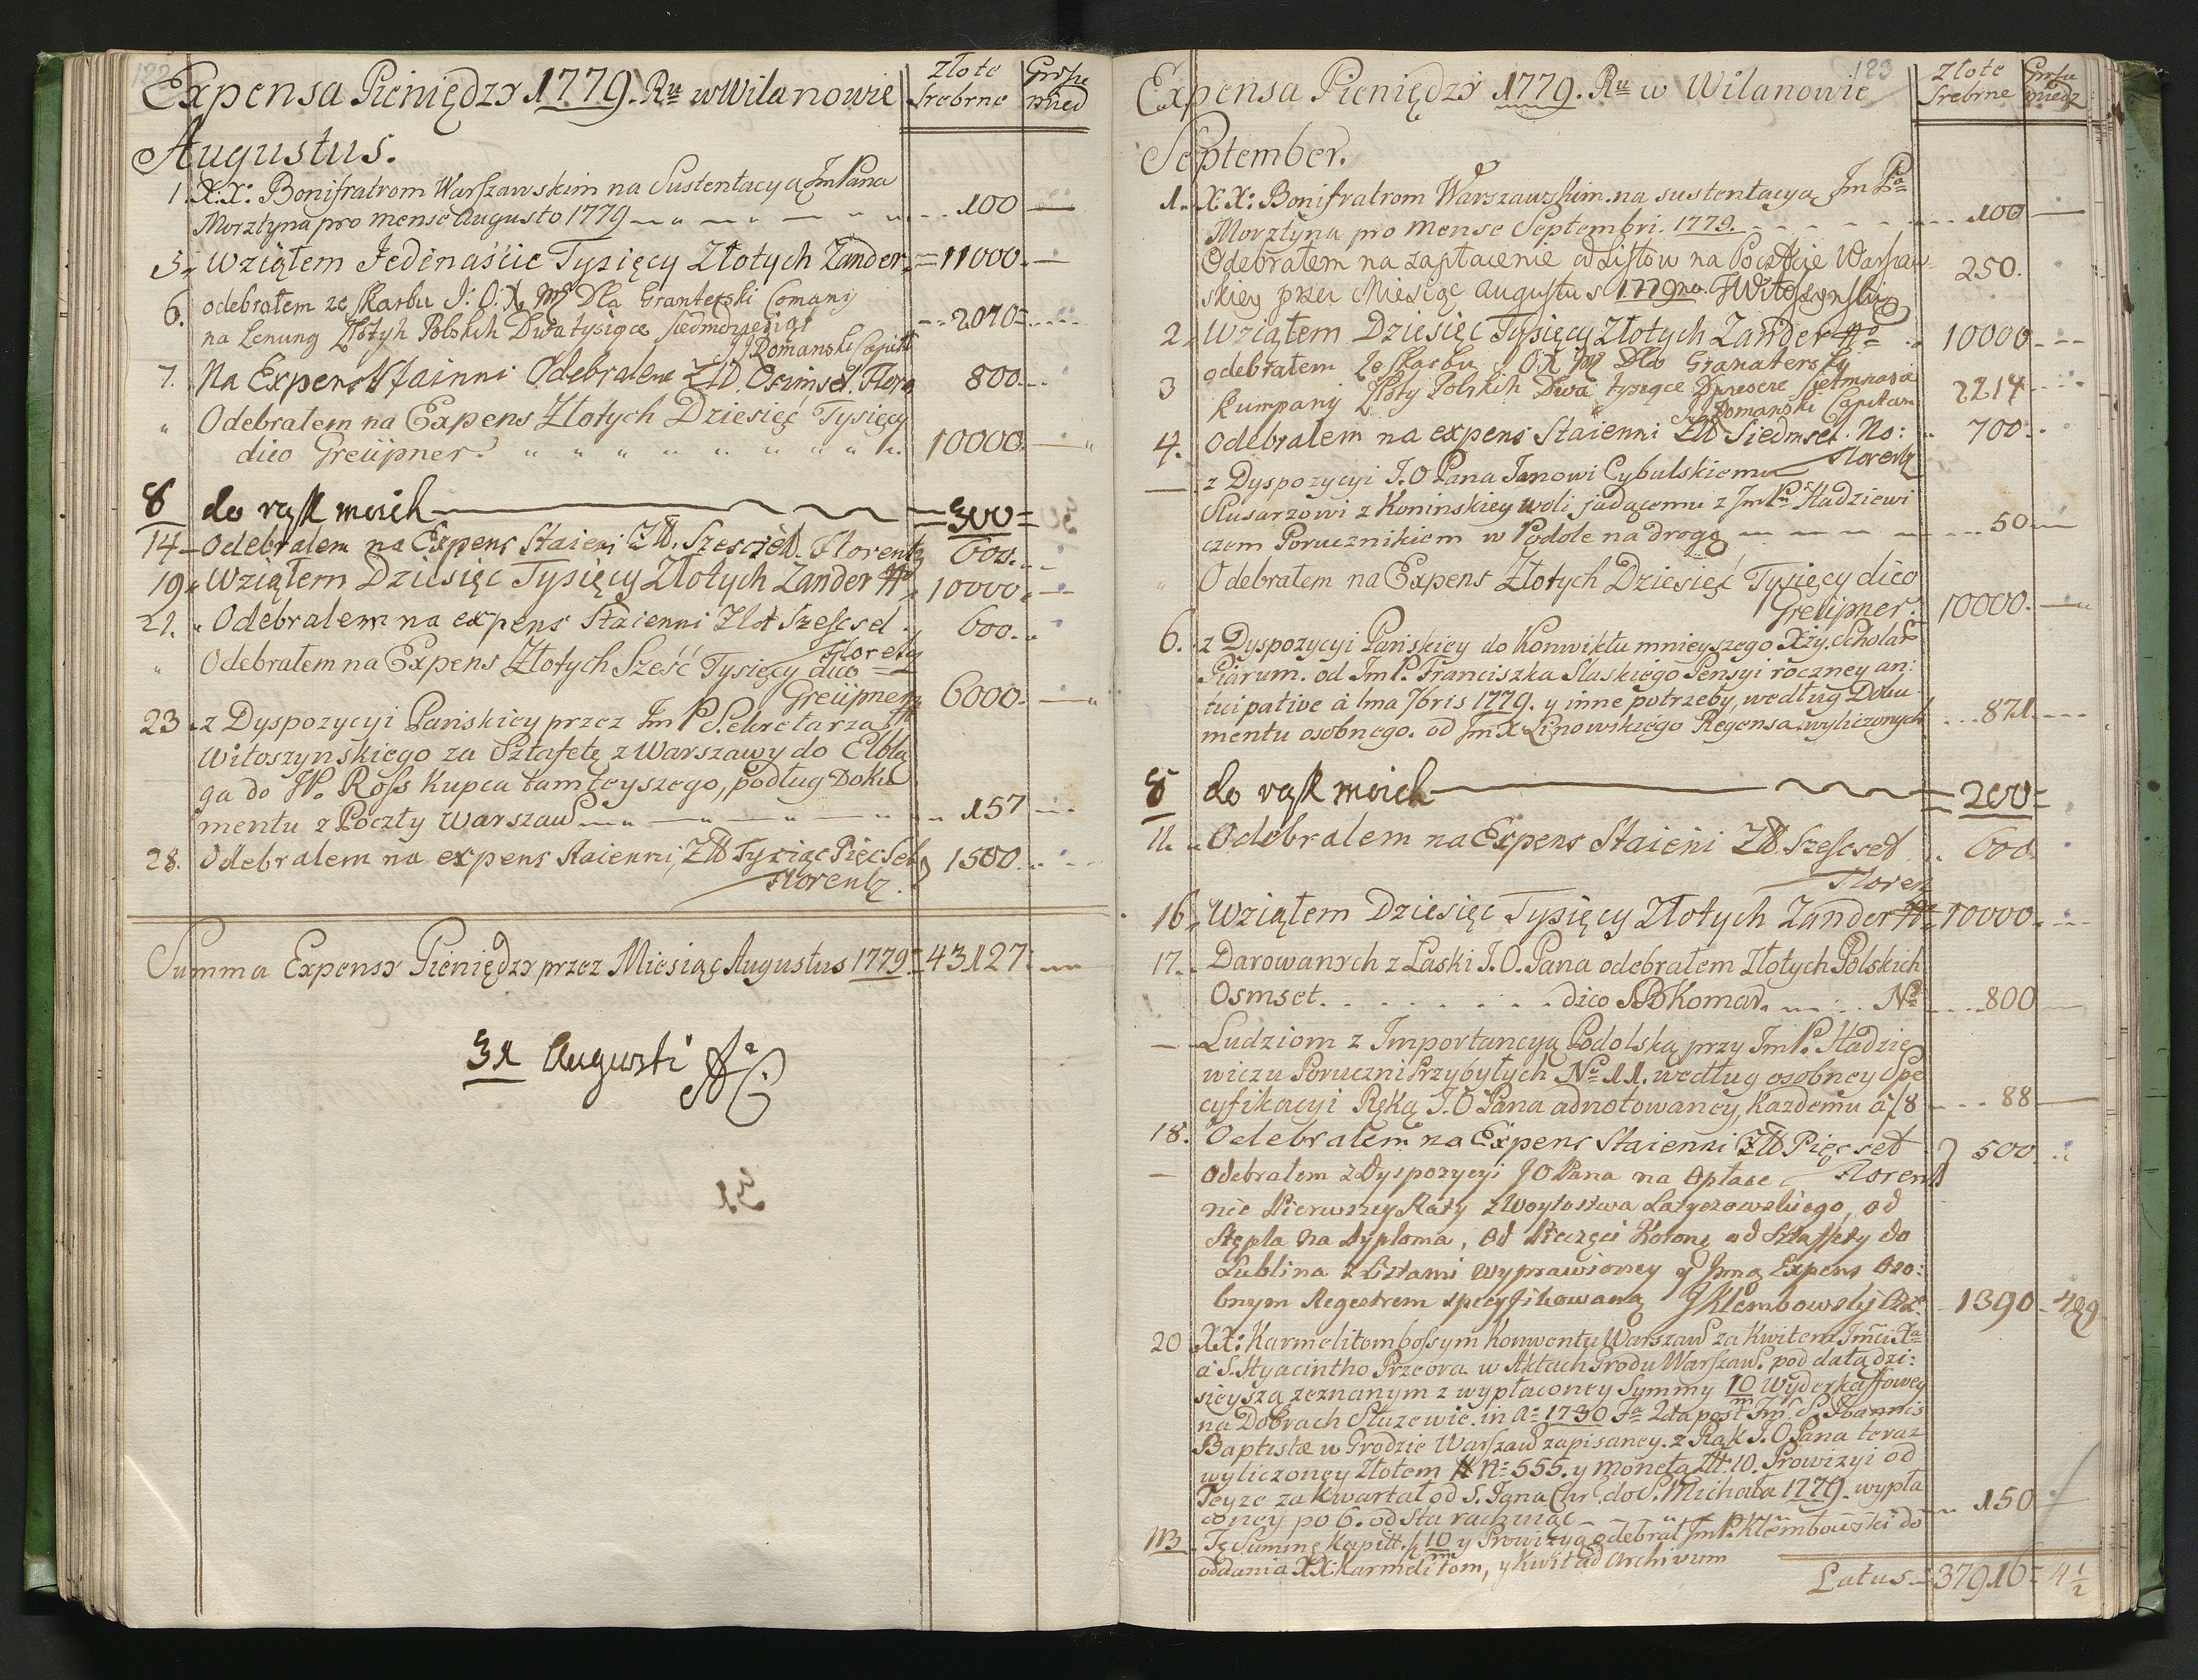 122
Expensa Pieniędzy 1779. Ru w Wilanowie
Złote Srebrne
Grosze mied
Augustus.
1. X.X: Bonifratrom Warszawskim na Sustentacyą ImPana
Morztyna pro mense Augusto 1779 100
5. Wziąłem Jedenaście Tysięcy Złotych Zander 11000
6. odebrałem ze skarbu J: O: X Dla Granterski Comany
na Lenung Złotyh Polskih Dwa tysiące siedmdziesiąt 2070
JDomanski Capitt
7. Na Expens Stainni Odebralem Złł. Osimset. Flore 800
" Odebrałem na Expens Złotych Dziesięć Tysięcy
dico Greüpner. 10000
8 do rąk moich 300
14 Odebralem na Expens Staieni Złł. Szescset. Florentz 600
19 Wziąłem Dziesięc Tysięcy Złotych Zander 10000
21. Odebralem na expens Staienni Zlot Szescset 600
Floretz
" Odebrałem na Expens Złotych Sześć Tysięcy dico
Greüpner 6000
23 z Dyspozycyi Pańskiey przez Im P Sekretarza
Witoszynskiego za Sztafetę z Warszawy do Elblą
ga do JP. Ross Kupca tamteyszego, podług Doku
mentu z Poczty Warszaw 157
28. Odebralem na expens Staienni, Złł Tysiąc Pięc Set 1500
Florentz.
Summa Expensy Pieniędzy przez Miesiąc Augustus 1779 43127
31 Augusti
123
Expensa Pieniędzy 1779. Ru w Wilanowie
Złote Srebrne
Grosze miedz
September.
1. X.X: Bonifratrom Warszawskim na sustentacyą Im Pa
Morztyna pro Mense Septembri. 1779. 100
Odebrałem na zapłacenie od Listow na Poczcie Warszaw
skiey przez Miesiąc Augustus 1779. JWitoszynski 250.
2. Wziąłem Dziesięc Tysięcy Złotych Zander 10000
3 odebrałem ze skarbu J OX Dla Granaterski
Kumpany Złoty Polskih Dwa tysiące Dwiescie 2214
JDomanski Capitan
4. Odebralem na expens Staienni Złł Siedmset. No: 700
Florentz
z Dyspozycyi J.O Pana Janowi Cybulskiemu
Slusarzowi z Koninskiey woli jadącemu z ImPm Stadziewi
czem Porucznikiem w Podole na drogę 50
" Odebrałem na Expens Złotych Dziesięć Tysięcy dico
Greüpner. 10000
6. z Dyspozycyi Pańskiey do Konwiktu mnieyszego Xży. Scholar
Piarum. od Im P. Franciszka Slaskiego Pensyi roczney an:
ticipative à 1ma 7bris 1779. y inne potrzeby, według Doku
mentu osobnego. od Im X Linowskiego Regensa wyliczonych 871
8 do rąk moich 200
11. Odebralem na Expens Staieni Złł. Szescset 600
Florentz
16 Wziąłem Dziesięc Tysięcy Złotych Zander 10000
17. Darowanych z Łaski J.O.Pana odebrałem Złotych Polskich
Osmset. dico Komar. No 800
Ludziom z Importancyą Podolską przy Im P. Stadzie
wiczu Poruczni Przybyłych No 11. według osobney Spe
cyfikacyi Ręką J.O Pana adnotowaney, każdemu à f 8 88
18. Odebralem na Expens Staienni Złł Pięcset 500
Florentz
Odebrałem z Dyspozycyi JO Pana na Opłace
nie Pierwszey Raty z Woytostwa Latyczowskiego, od
Stępla na Dyploma, od Pieczęci Kolonę od Sztaffety do
Lublina z Listami wyprawioney y Inną Expens Oso:
bnym Regestrem specyfikowaną JKlembowski 1390 4½
20 XX: Karmelitom bossym Konwentu Warszaw za Kwitem
à S. Hyacintho Przeora w Aktach Grodu Warszaw. pod datą dzi:
sieyszą zeznanym z wypłaconey Summy 10 Wyderkaffowey
na Dobrach Sluzewie. in Ao 1730 Fa 2da post Joannis
Baptistæ w Grodzie Warszaw zapisaney. z Rąk J.O Pana teraz
wyliczoney Złotem No 555. y monetą Złł. 10. Prowizyi od
Teyze za kwartał od S. Jana Chr. do S. Michała 1779. wypła
coney po 6. od sta rachuiąc 150
NB. Tę Summę Kapitt. f 10 y Prowizyą odebrał Im P. Klembowski do
oddania XX Karmelitom, y Kwit ad Archivum
Latus 37916 4½